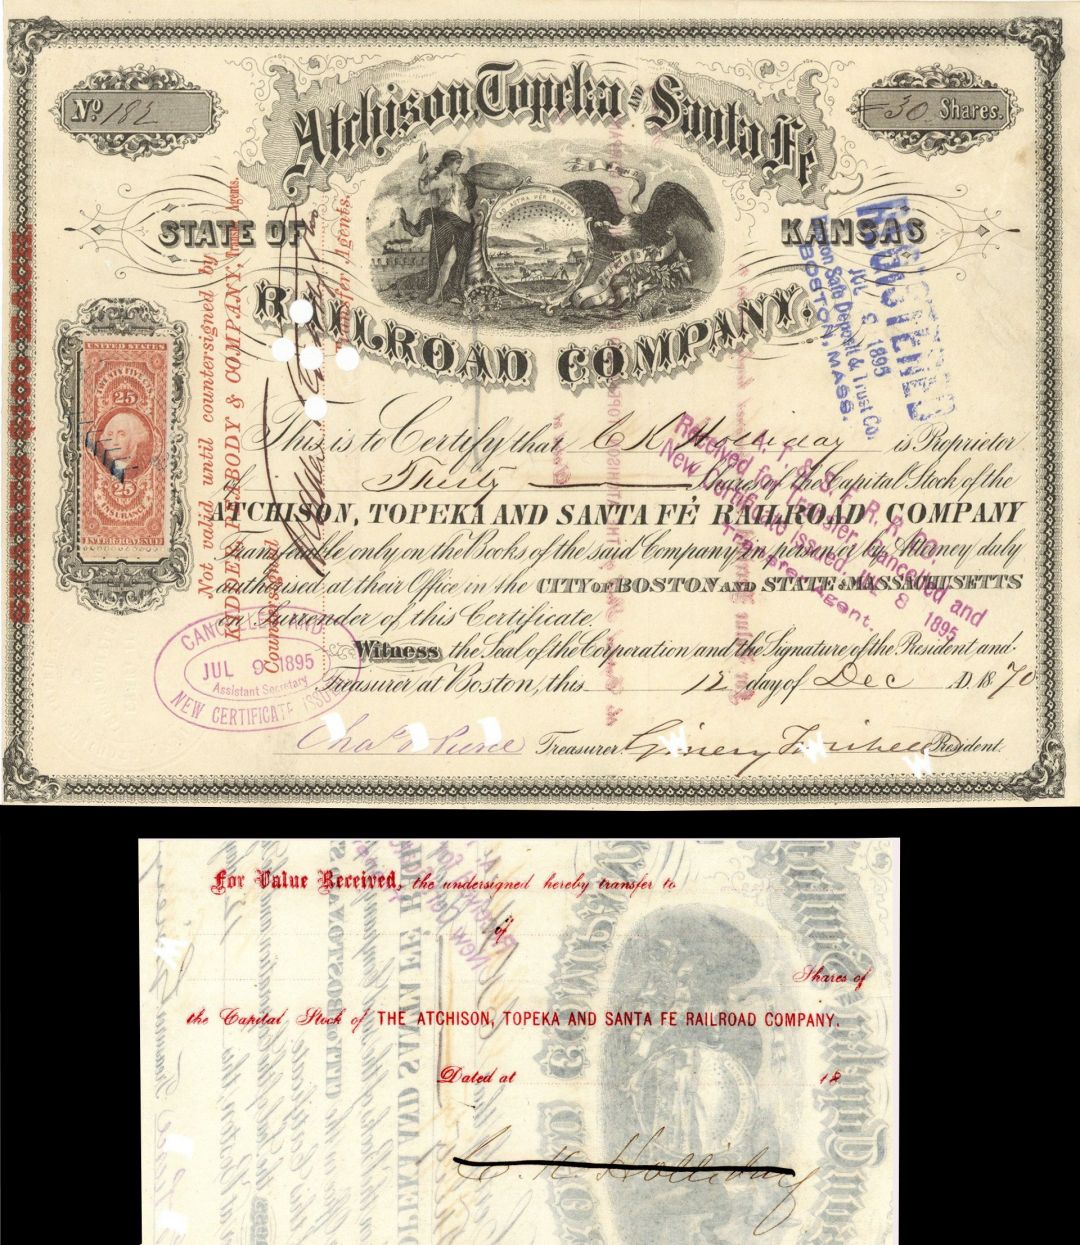 Nº 182
30 Shares.
Atchison, Topeka AND Santa Fé
STATE OF KANSAS
RAILROAD COMPANY.
AD ASTRA PER ASPERA
UNITED STATES
TWENTY FIVE CTS.
25
25
INSURANCE
INTER. REVENUE
This is to Certify that C K Holliday is Proprietor
of Thirty Shares of the Capital Stock of the
ATCHISON, TOPEKA AND SANTA FÉ RAILROAD COMPANY
Transferable only on the Books of the said Company in person or by Attorney duly
authorised at their Office in the CITY OF BOSTON AND STATE OF MASSACHUSETTS
on Surrender of this Certificate.
Witness the Seal of the Corporation and the Signature of the President and
Treasurer at Boston, this 12 day of Dec A.D. 1870
Treasurer. President.
Not valid until countersigned by
KIDDER, PEABODY & COMPANY, Transfer Agents.
Countersigned
Transfer Agents.
REGISTERED
JUL 9 1895
Boston Safe Deposit & Trust Co.
BOSTON, MASS.
A. T. & S. F. R. R. CO.
Received for Transfer, Cancelled and
New Certificate Issued, JUL 8 1895
Transfer Agent.
CANCELLED AND
JUL 9 1895
Assistant Secretary
NEW CERTIFICATE ISSUED
For Value Received, the undersigned hereby transfer to
of
Shares of
the Capital Stock of THE ATCHISON, TOPEKA AND SANTA FE RAILROAD COMPANY.
Dated at 18
C. K. Holliday